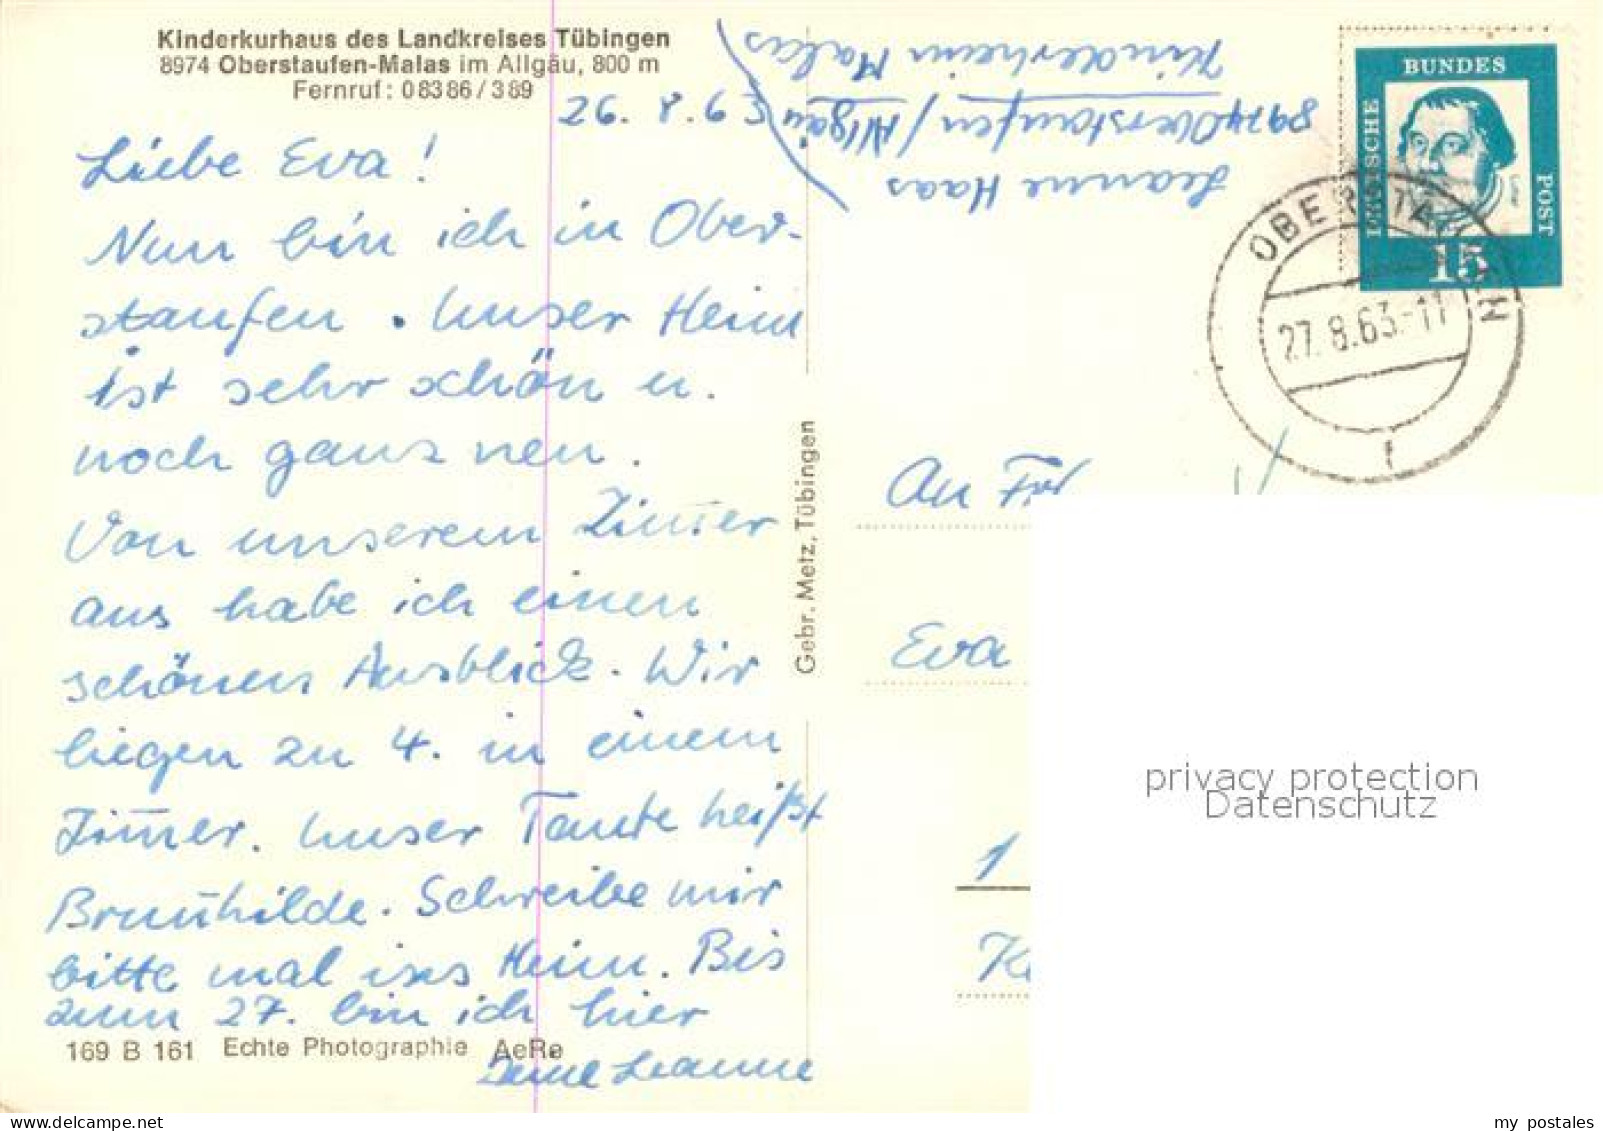 Kinderkurhaus des Landkreises Tübingen
8974 Oberstaufen-Malas im Allgäu, 800 m
Fernruf: 08386/389
26. 8. 63
Liebe Eva!
Nun bin ich in Ober-
staufen. Unser Heim
ist sehr schön u.
noch ganz neu.
Von unserem Zim̅er
aus habe ich einen
schönen Ausblick. Wir
liegen zu 4. in einem
Zim̅er. Unser Tante heißt
Brun̅hilde. Schreibe mir
bitte mal ins Heim. Bis
zum 27. bin ich hier
Deine Leanne
169 B 161 Echte Photographie AeRe
Gebr. Metz, Tübingen
Leanne Haas
8974 Oberstaufen/Allgäu
Kinderheim Malas
BUNDES
DEUTSCHE
POST
15
OBERSTAUFEN
27.8.63.-11
f
An Frl
Eva
1
privacy protection
Datenschutz
my postales